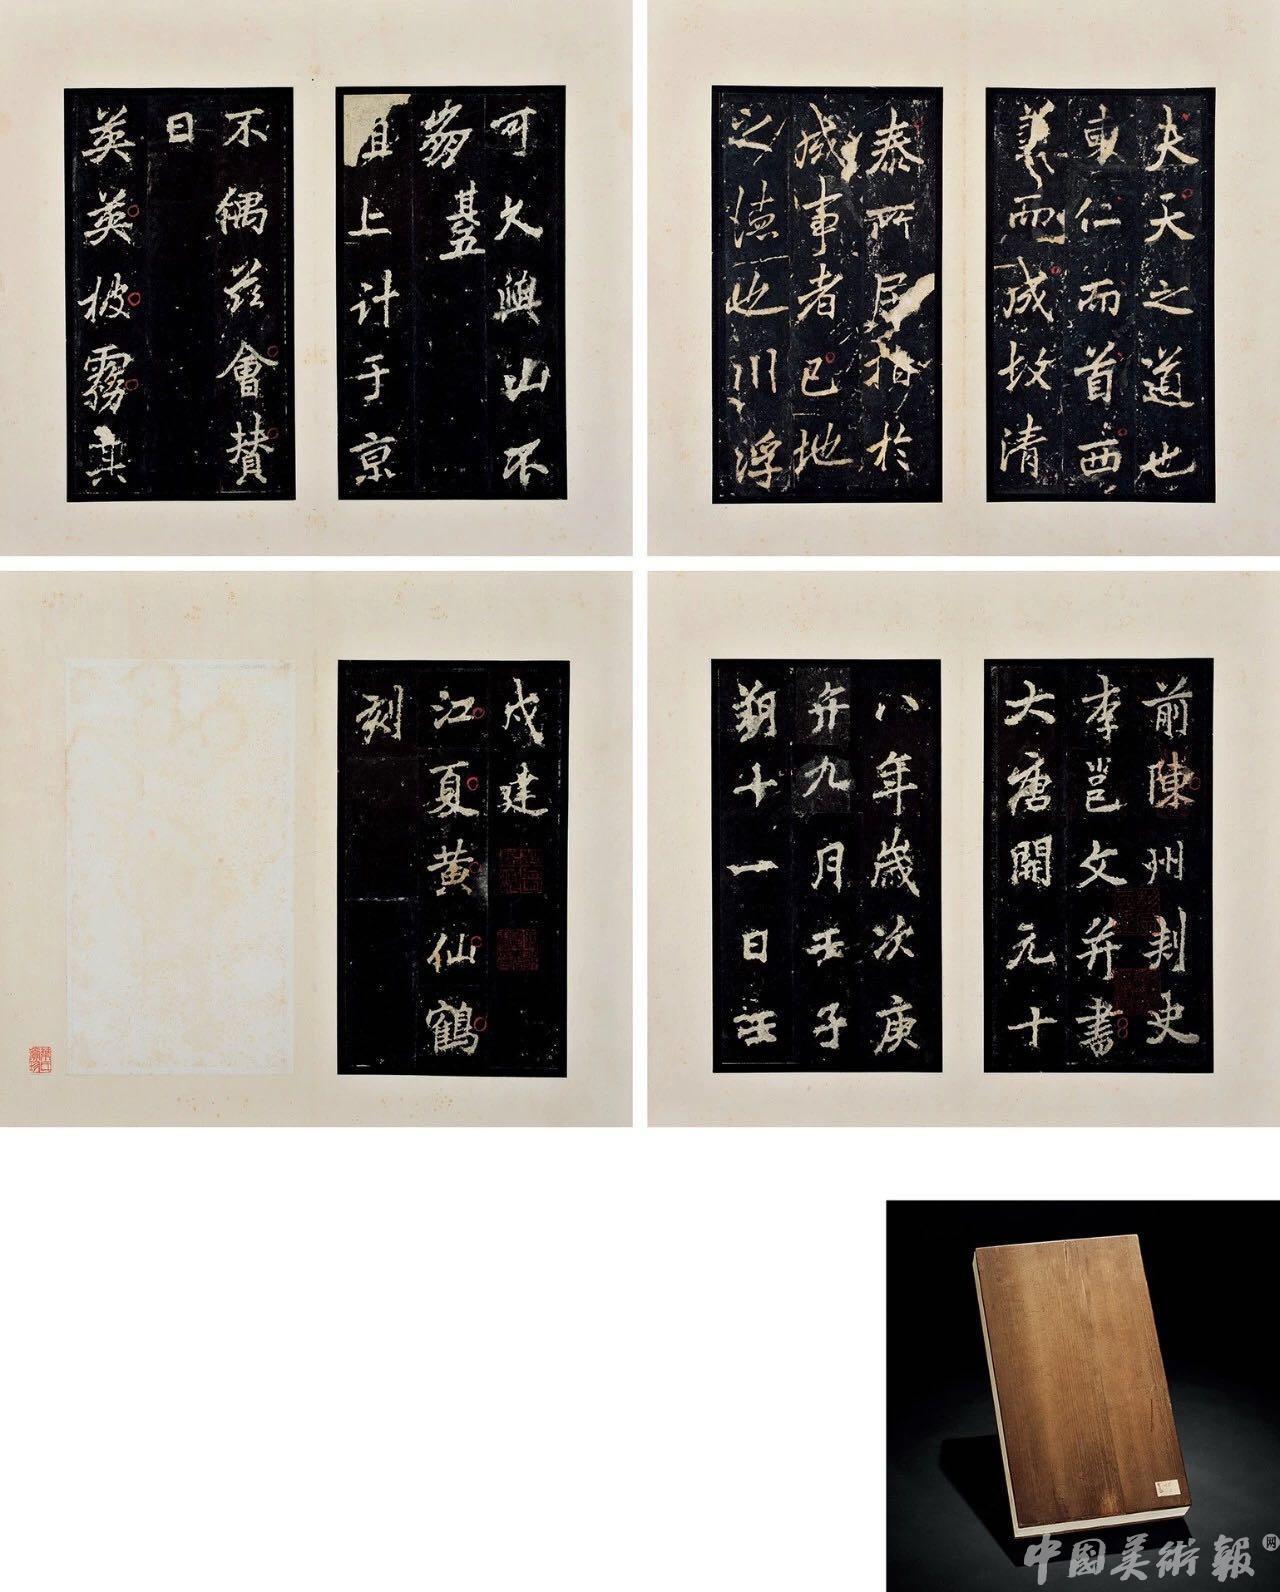 夫天之道也
東仁而首西
義而成故清
泰所居指於
成事者已地
之德也川浮
可久與山不
其五
且上計于京
不偶茲會贊
曰
英英披霧其
前陳州刺史
李邕文并書
大唐開元十
八年歲次庚
午九月壬子
朔十一日壬
戌建
江夏黃仙鶴
刻
中國美術報网